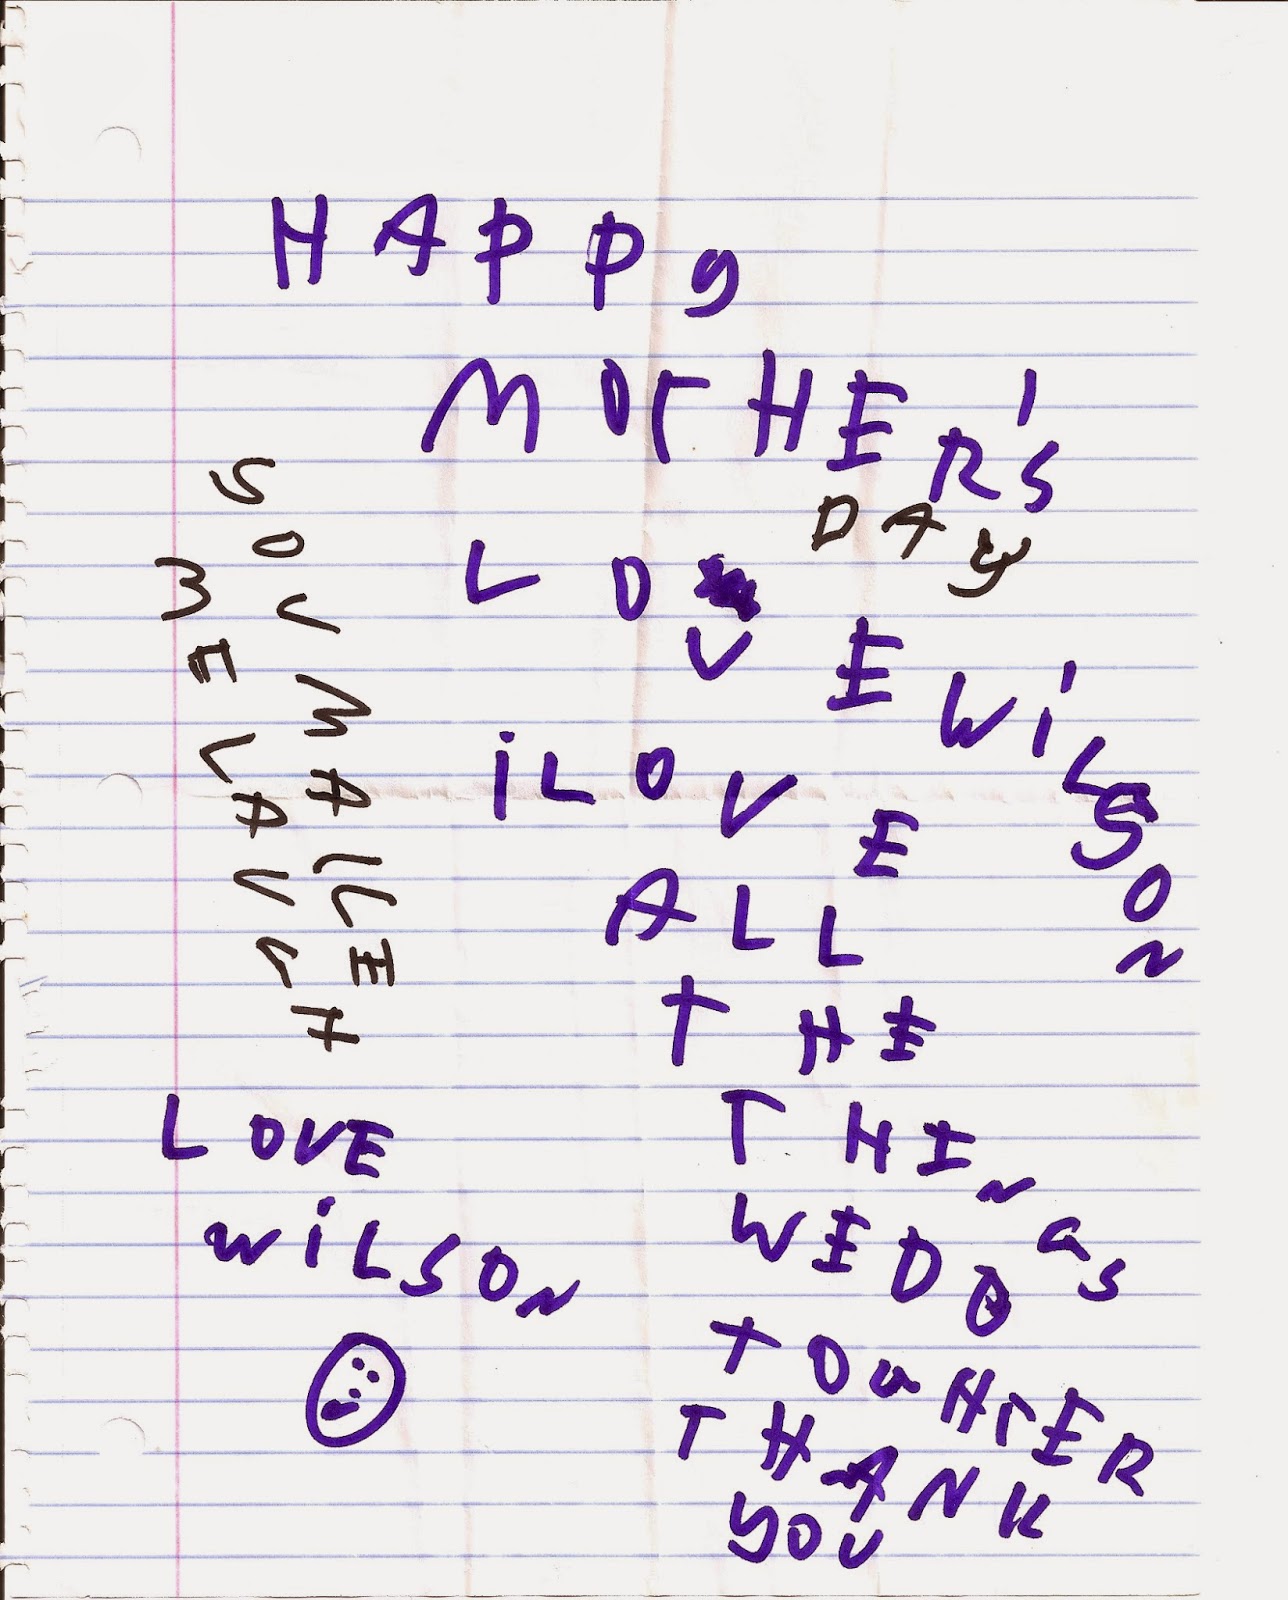 HAPPy
MOTHER'S
DAy
LOVE WiLSON
i LOVE
ALL
THE
THINGS
WE DO
TOGHTER
THANK
yOU
yOU MAKE
ME LAUGH
LOVE
WiLSON